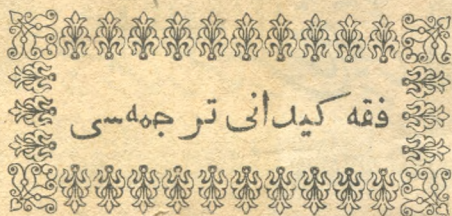 فقه كيدانى ترجمه‌سى